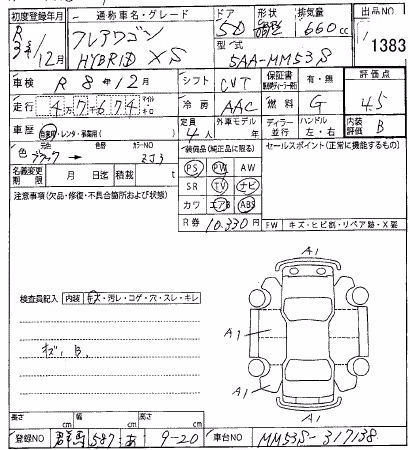 初度登録年月 通称車名・グレード ドア 形状 排気量 出品NO
R 3年/12月 フレアワゴン HYBRID XS 5D 660cc 1383
型式 5AA-MM53S
車検 R 8年12月 シフト CVT 保証書 有・無 評価点
走行 4 7,674 マイル キロ 冷房 AAC 燃料 G 4.5
車歴 自家用・レンタ・事業用( ) 定員 4人 外車モデル ディーラー 並行 ハンドル 左・右 内装評価 B
色 元色 ブラック → 色替 カラーNO ZJ3 装備品(純正品に限る) セールスポイント(正常に機能するもの)
名義変更期限 月 日迄 積載 t PS PW AW
注意事項(欠品・修復・不具合箇所および状態) SR TV ナビ
カワ エアB ABS
R券 10,330円 FW キズ・ヒビ割・リペア跡・X要
A1
検査員記入 内装 キズ・汚レ・コゲ・穴・スレ・キレ
A1
キズ、B、
A1
A1
長さ cm 幅 cm 高さ cm
登録NO 群馬 587 あ 9-20 車台NO MM53S-317138